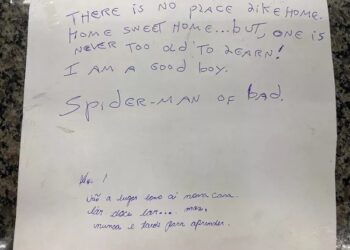 THERE IS NO PLACE LIKE HOME.
HOME SWEET HOME...BUT, ONE IS
NEVER TOO OLD TO LEARN!
I AM A GOOD BOY.
SPIDER-MAN OF BAD.
!
não a lugar como a nossa casa
lar doce lar... mas,
nunca é tarde para aprender.